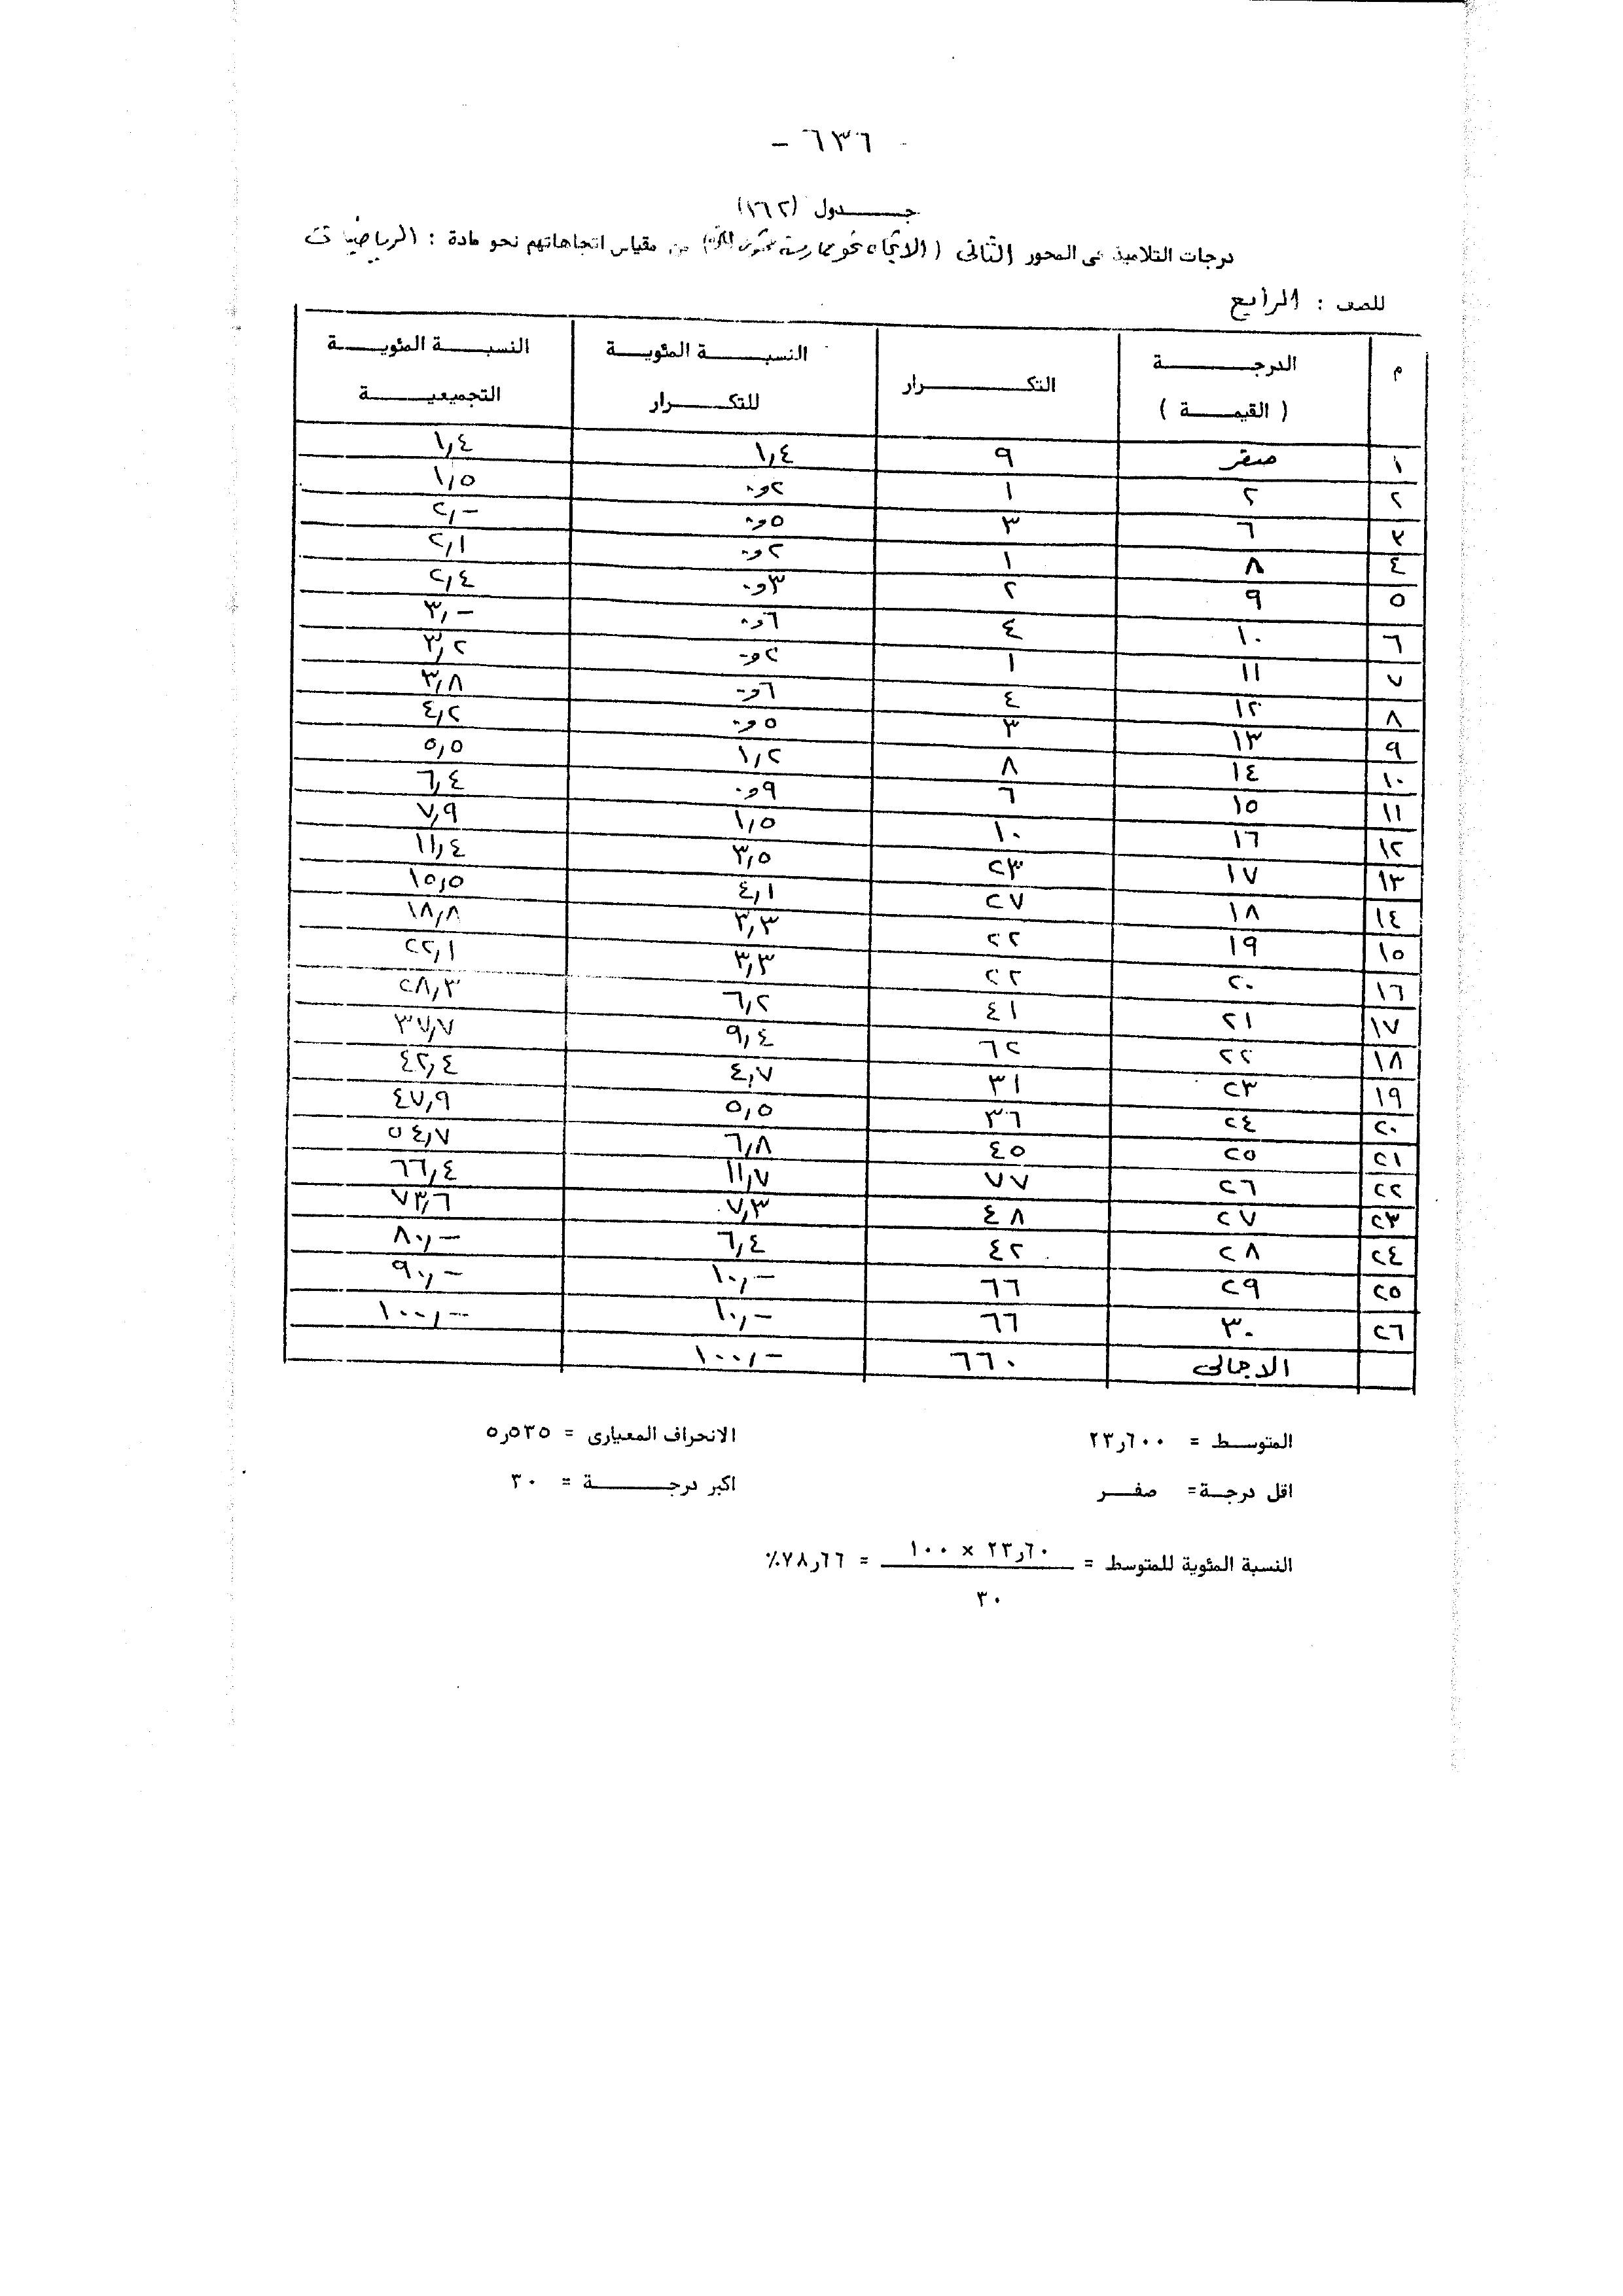 - ٦٣٦ -
جـــدول (١٦٢)
درجات التلاميذ فى المحور الثانى (الاتجاه نحو ممارسة محتوى المادة) من مقياس اتجاهاتهم نحو مادة : الرياضيات
للصف : الرابع
م الدرجـــة (القيمـــة) التكـــرار النسبـــة المئويـــة للتكـــرار النسبـــة المئويـــة التجميعيـــة
١ صفر ٩ ١,٤ ١,٤
٢ ٢ ١ ٢و٠ ١,٥
٣ ٦ ٣ ٥و٠ ٢,-
٤ ٨ ١ ٢و٠ ٢,١
٥ ٩ ٢ ٣و٠ ٢,٤
٦ ١٠ ٤ ٦و٠ ٣,-
٧ ١١ ١ ٢و٠ ٣,٢
٨ ١٢ ٤ ٦و٠ ٣,٨
٩ ١٣ ٣ ٥و٠ ٤,٢
١٠ ١٤ ٨ ١,٢ ٥,٥
١١ ١٥ ٦ ٩و٠ ٦,٤
١٢ ١٦ ١٠ ١,٥ ٧,٩
١٣ ١٧ ٢٣ ٣,٥ ١١,٤
١٤ ١٨ ٢٧ ٤,١ ١٥,٥
١٥ ١٩ ٢٢ ٣,٣ ١٨,٨
١٦ ٢٠ ٢٢ ٣,٣ ٢٢,١
١٧ ٢١ ٤١ ٦,٢ ٢٨,٣
١٨ ٢٢ ٦٢ ٩,٤ ٣٧,٧
١٩ ٢٣ ٣١ ٤,٧ ٤٢,٤
٢٠ ٢٤ ٣٦ ٥,٥ ٤٧,٩
٢١ ٢٥ ٤٥ ٦,٨ ٥٤,٧
٢٢ ٢٦ ٧٧ ١١,٧ ٦٦,٤
٢٣ ٢٧ ٤٨ ٧,٣ ٧٣,٦
٢٤ ٢٨ ٤٢ ٦,٤ ٨٠,-
٢٥ ٢٩ ٦٦ ١٠,- ٩٠,-
٢٦ ٣٠ ٦٦ ١٠,- ١٠٠,-
الاجمالى ٦٦٠ ١٠٠,-
المتوســط = ٢٣ر٦٠٠ الانحراف المعيارى = ٥ر٥٣٥
اقل درجــة = صفـــر اكبر درجـــــة = ٣٠
النسبة المئوية للمتوسط = ٢٣ر٦٠ × ١٠٠ = ٧٨ر٦٦٪
٣٠